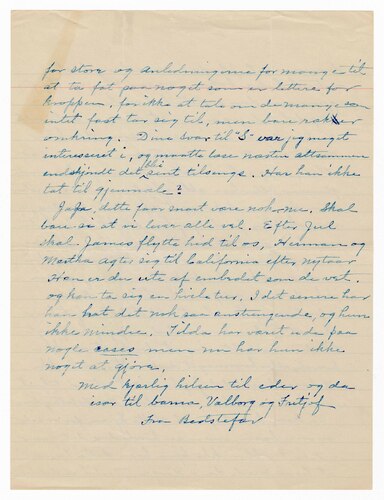 for store og anledningerne for mange til
at ta fat paa noget som er lettere for
kroppen, for ikke at tale om de mange som
intet fast tar sig til, men bare rækker
omkring. Dine svar til "S" var jeg meget
interesseret i, og maatte læse næsten altsammen
endskjøndt det blev sent tilsengs. Har han ikke
tat til gjenmæle?
Ja, Ja, dette faar snart være nok nu. Skal
bare si at vi lever alle vel. Efter Jul
skal James flytte hid til os, Herman og
Martha agter sig til California efter nytaar
Han er du ute af embedet som du vet.
og kan ta sig en hviletur. I det senere har
han hat det nok saa anstrengende, og hun
ikke mindre. Tilda har været ude paa
nogle cases men nu har hun ikke
noget at gjøre.
Med kjærlig hilsen til eder og da
især til barna, Valborg og Fritjof
Fra Bedstefar